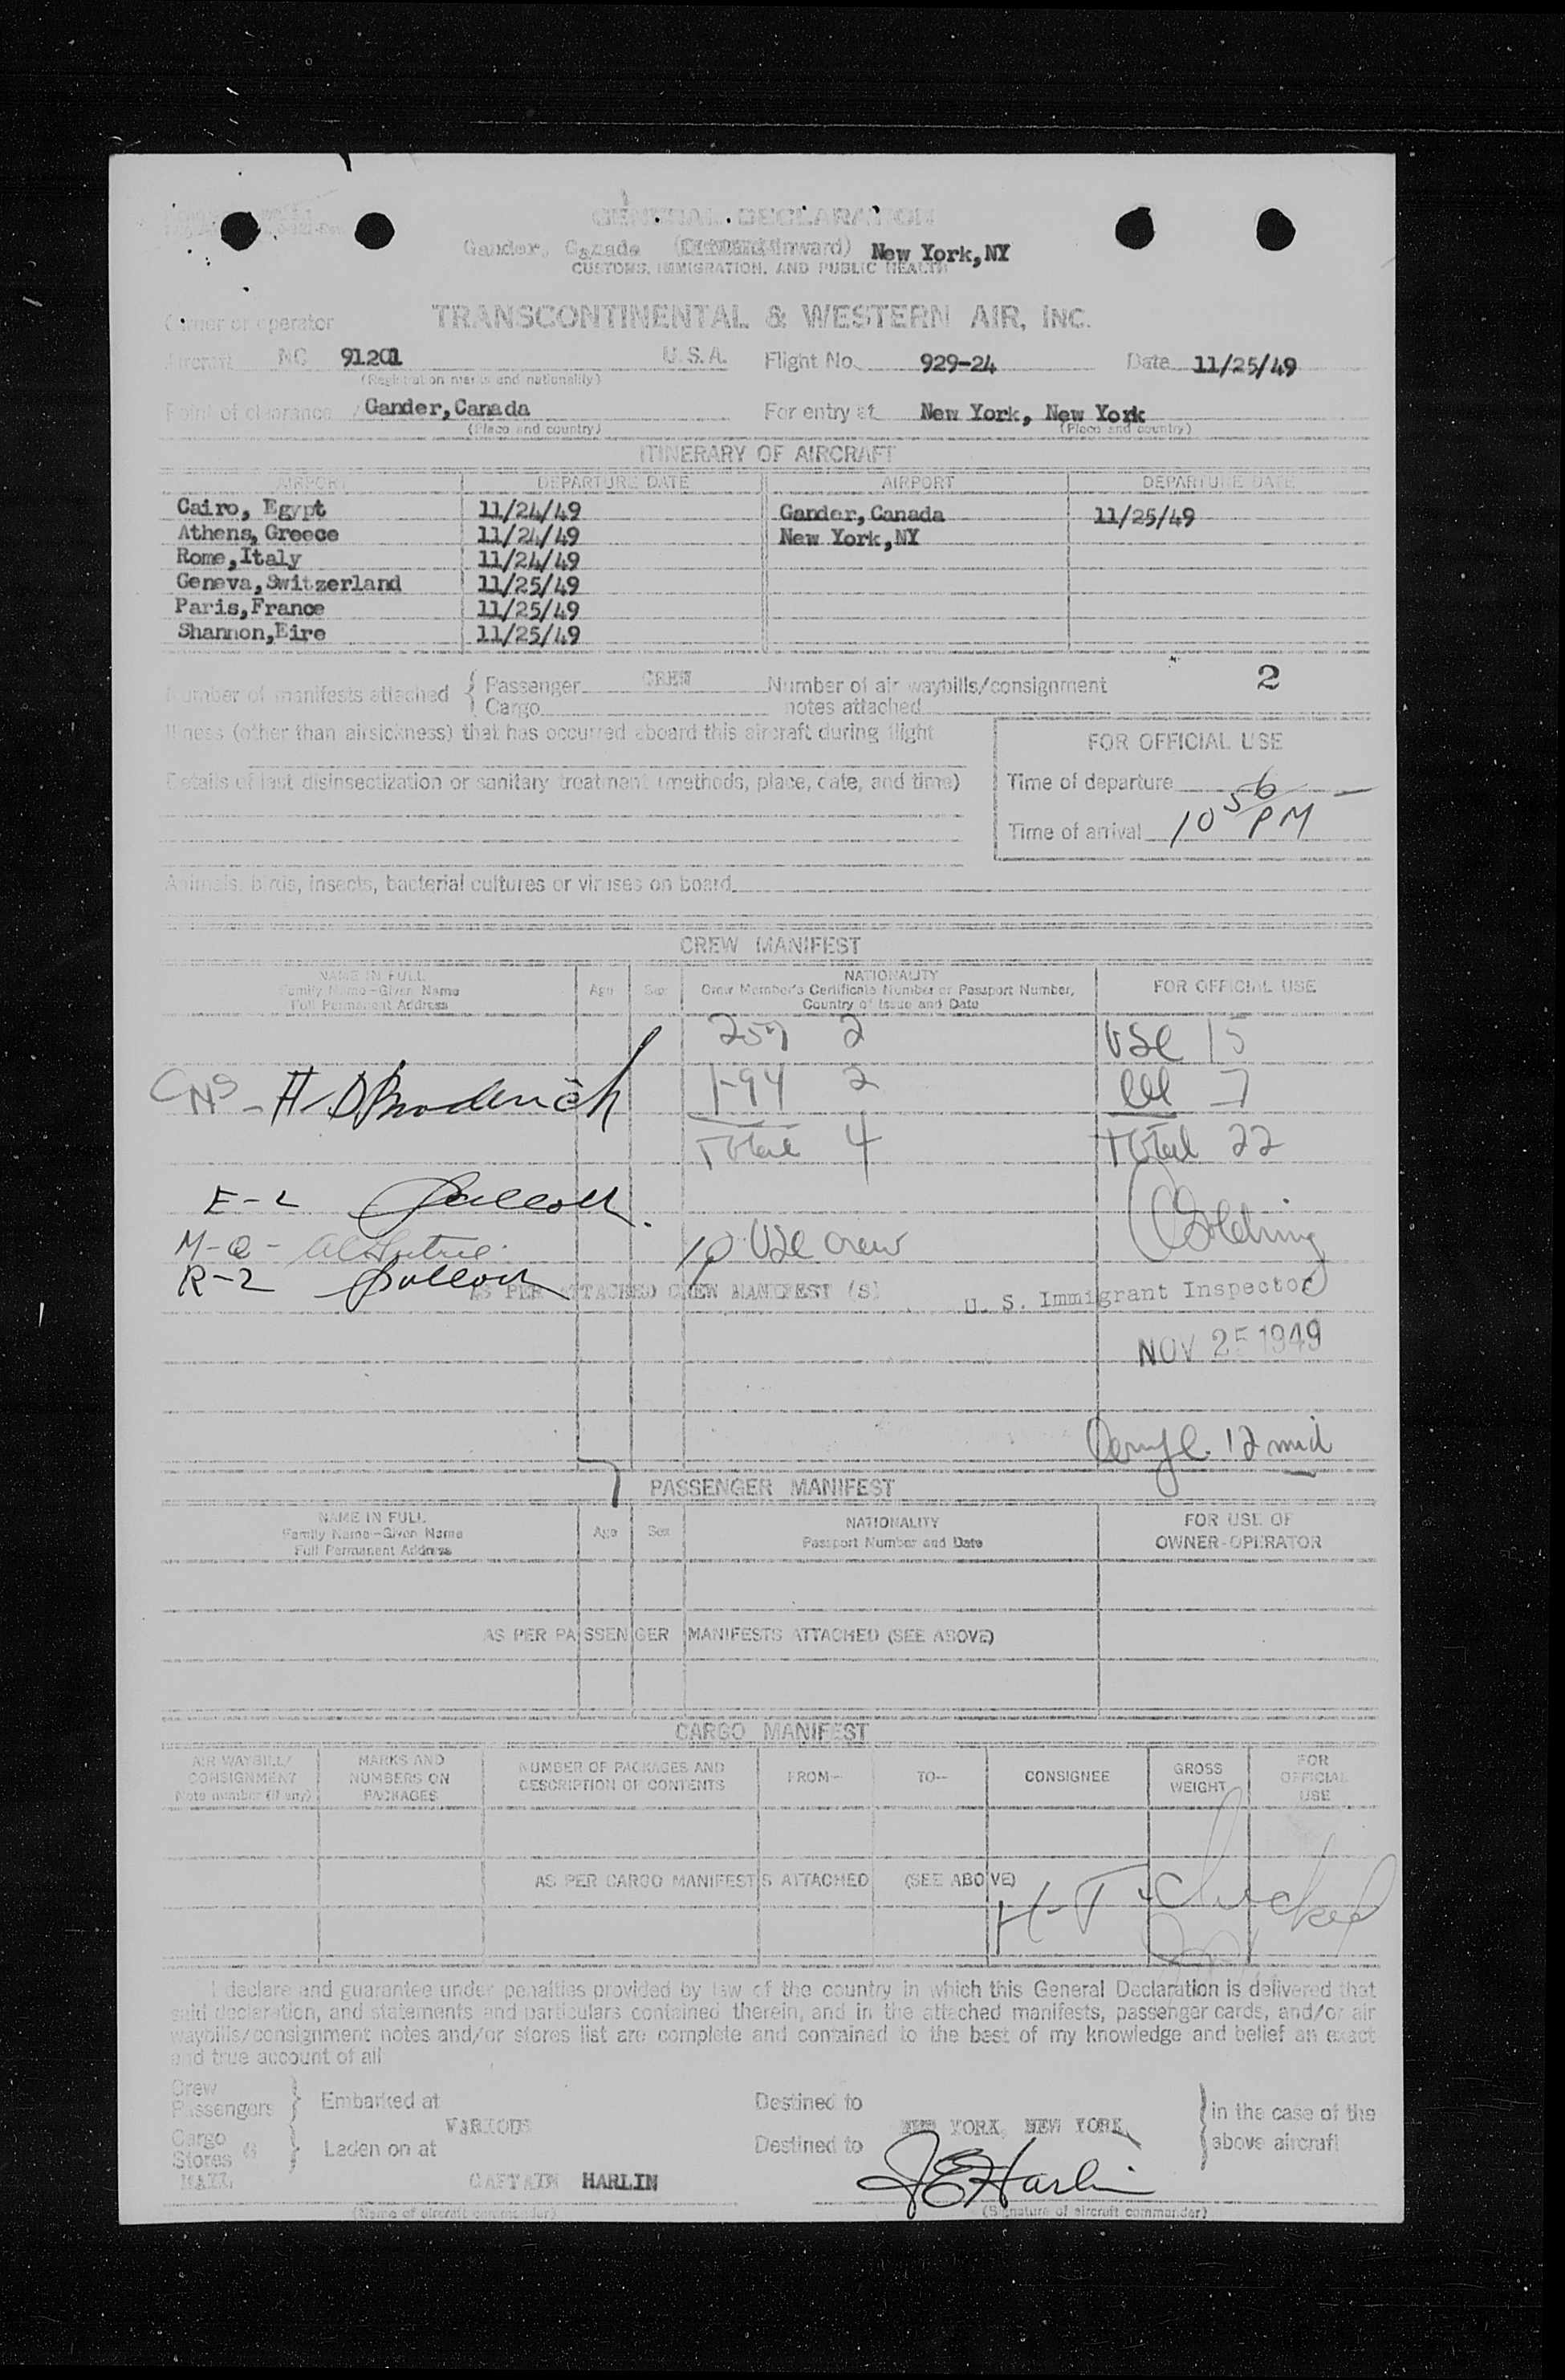 GENERAL DECLARATION
Gander, Canada (Outward/Inward) New York,NY
CUSTOMS, IMMIGRATION, AND PUBLIC HEALTH
Carrier or operator TRANSCONTINENTAL & WESTERN AIR, INC.
Aircraft NC 91201 U.S.A. Flight No. 929-24 Date 11/25/49
(Registration marks and nationality)
Point of clearance Gander,Canada For entry at New York, New York
(Place and country) (Place and country)
ITINERARY OF AIRCRAFT
AIRPORT DEPARTURE DATE AIRPORT DEPARTURE DATE
Cairo, Egypt 11/24/49 Gander,Canada 11/25/49
Athens, Greece 11/24/49 New York,NY
Rome,Italy 11/24/49
Geneva,Switzerland 11/25/49
Paris,France 11/25/49
Shannon,Eire 11/25/49
Number of manifests attached { Passenger CREW Number of air waybills/consignment 2
Cargo notes attached
Illness (other than airsickness) that has occurred aboard this aircraft during flight
FOR OFFICIAL USE
Details of last disinsectization or sanitary treatment (methods, place, date, and time)
Time of departure
Time of arrival 10 56 PM
Animals, birds, insects, bacterial cultures or viruses on board
CREW MANIFEST
NAME IN FULL Age Sex NATIONALITY FOR OFFICIAL USE
Family Name-Given Name Crew Member's Certificate Number or Passport Number,
Full Permanent Address Country of Issue and Date
257 2 USC 15
CNS - H D Broderick I-94 2 7
Total 4 Total 22
E-2
M-Q-
10 USC crew
R-2
AS PER ATTACHED CREW MANIFEST (S)
U. S. Immigrant Inspector
NOV 25 1949
12 mid
PASSENGER MANIFEST
NAME IN FULL Age Sex NATIONALITY FOR USE OF
Family Name-Given Name Passport Number and Date OWNER-OPERATOR
Full Permanent Address
AS PER PASSENGER MANIFESTS ATTACHED (SEE ABOVE)
CARGO MANIFEST
AIR WAYBILL/ MARKS AND NUMBER OF PACKAGES AND FROM- TO- CONSIGNEE GROSS FOR
CONSIGNMENT NUMBERS ON DESCRIPTION OF CONTENTS WEIGHT OFFICIAL
Note number (if any) PACKAGES USE
AS PER CARGO MANIFESTS ATTACHED (SEE ABOVE)
checked
I declare and guarantee under penalties provided by law of the country in which this General Declaration is delivered that
said declaration, and statements and particulars contained therein, and in the attached manifests, passenger cards, and/or air
waybills/consignment notes and/or stores list are complete and contained to the best of my knowledge and belief an exact
and true account of all
Crew
Passengers } Embarked at Destined to } in the case of the
VARIOUS NEW YORK, NEW YORK
Cargo
Stores & } Laden on at Destined to above aircraft
MAIL
CAPTAIN HARLIN JE Harlin
(Name of aircraft commander) (Signature of aircraft commander)